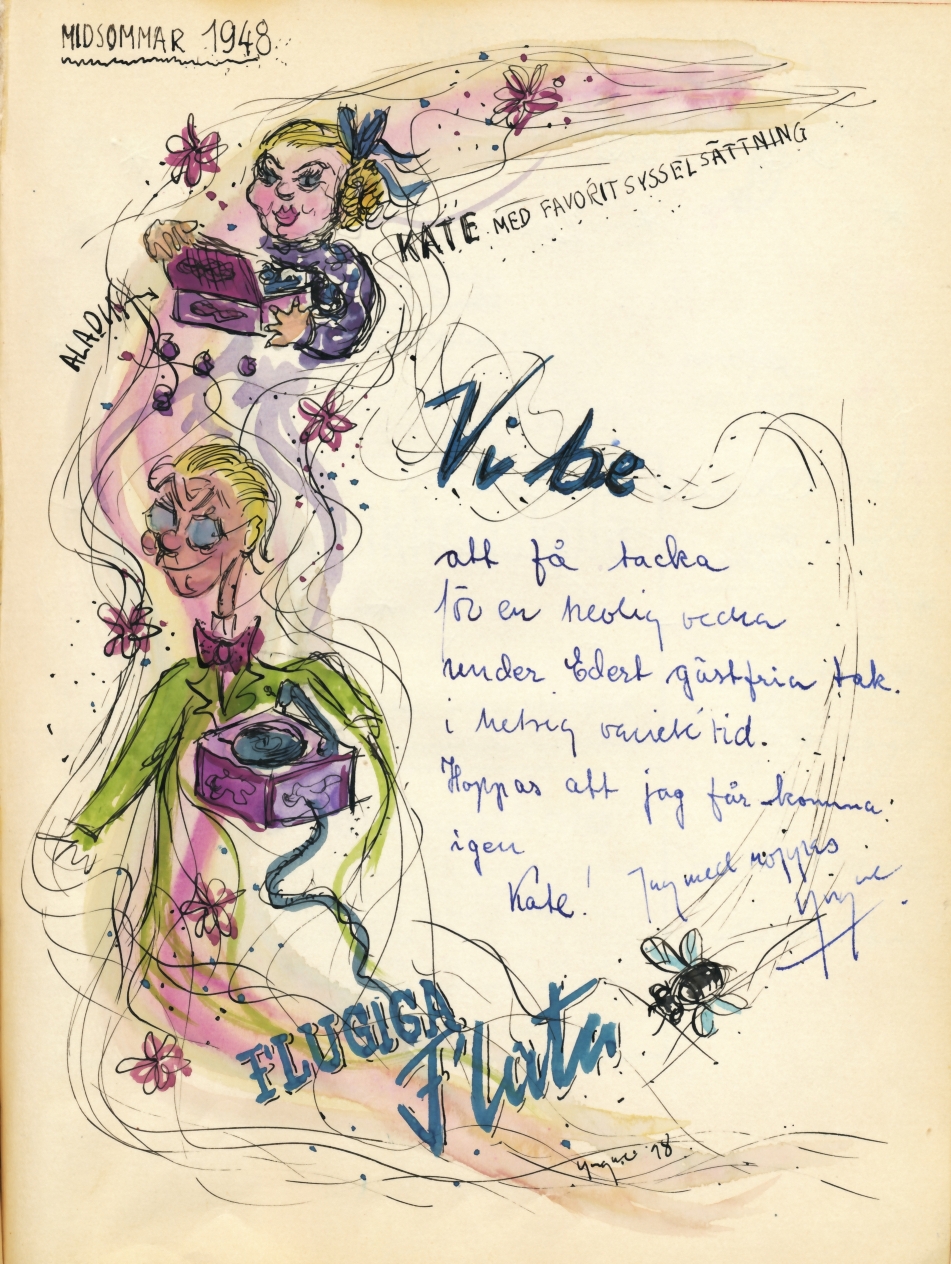 MIDSOMMAR 1948.
KATE MED FAVORITSYSSELSÄTTNING
ALADIN
Vi be
att få tacka
för en trevlig vecka
under Edert gästfria tak.
i hetsig
tid.
Hoppas att jag får komma
igen
Kate! Jag med hoppas
Yngve
FLUGIGA
Flata
Yngve 48